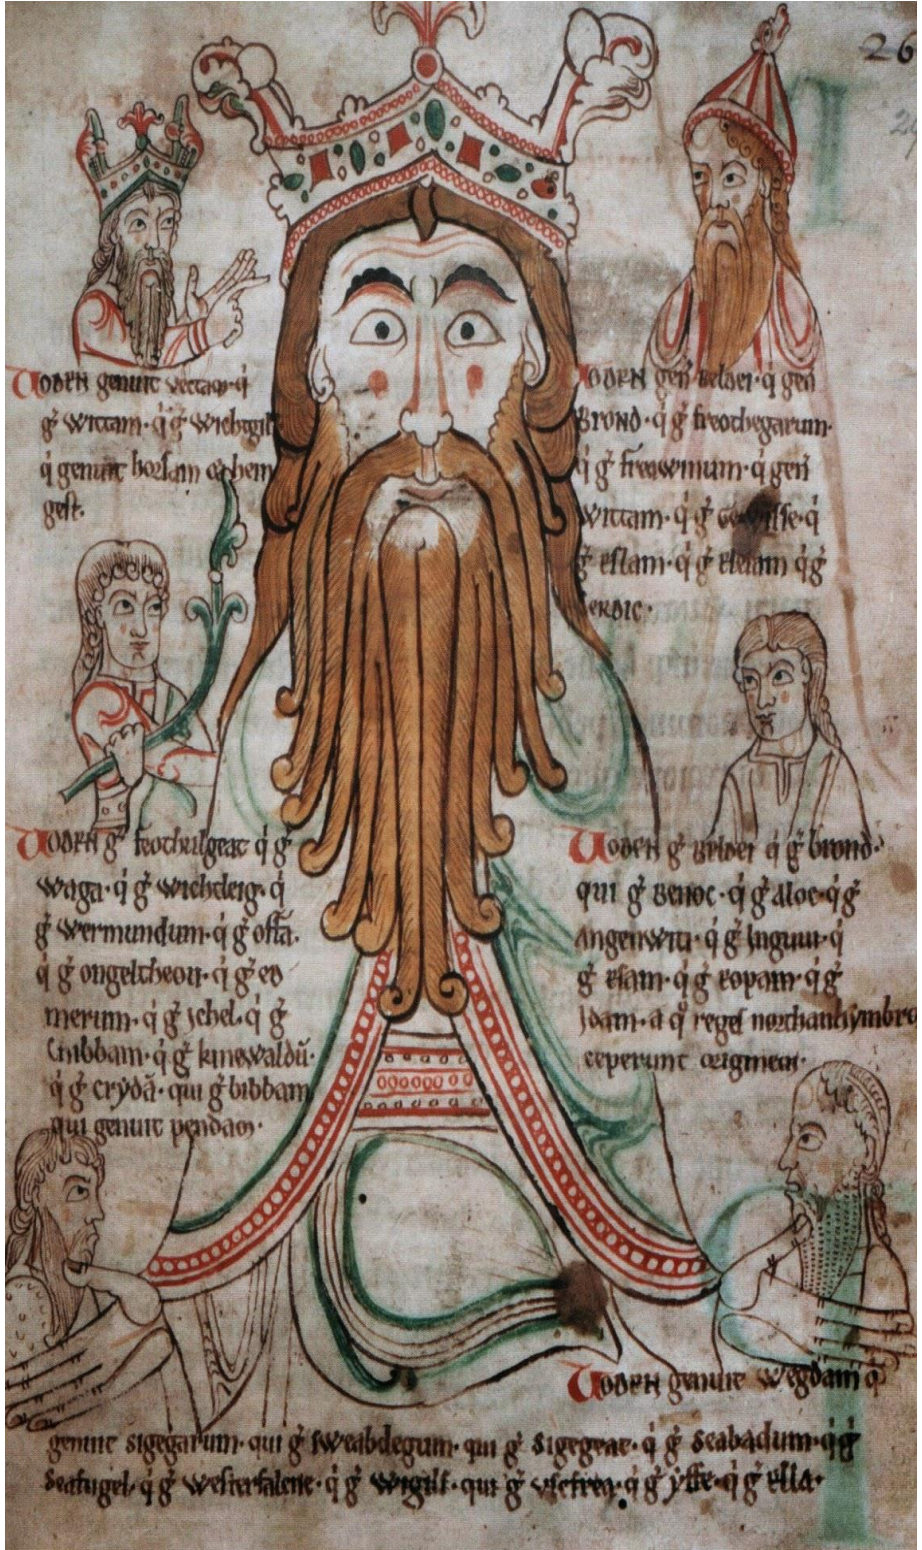 26
Woden genuit vectam· q̇
g̊ wittam· q̇ g̊ wichtgils
q̇ genuit horsam & hen
gest·
Woden gen̄ Beldei· q̇ gen̄
Brond· q̇ g̊ freothegarum·
q̇ g̊ freawinum· q̇ gen̄
wittam· q̇ g̊ Gewisse· q̇
g̊ eslam· q̇ g̊ eleiam q̇ g̊
cerdic·
Woden g̊ feothulgeat q̇ g̊
waga· q̇ g̊ wichtleig· q̇
g̊ wermundum· q̇ g̊ offā·
q̇ g̊ ongeltheou· q̇ g̊ eo
merum· q̇ g̊ ichel· q̇ g̊
Cnibbam· q̇ g̊ kinewaldū·
q̇ g̊ crydā· qui g̊ bibbam
qui genuit pendam·
Woden g̊ Beldei q̇ g̊ brond·
qui g̊ Benoc· q̇ g̊ aloc· q̇ g̊
angenwiti· q̇ g̊ Inguui· q̇
g̊ esam· q̇ g̊ eopam· q̇ g̊
Idam· a q̊ reges northanhymbro
ceperunt originem·
Woden genuit wegdam q̇
genuit sigegarum· qui g̊ sweabdegum· qui g̊ sigegeat· q̇ g̊ seabadum· q̇ g̊
seatugel· q̇ g̊ westerfalcne· q̇ g̊ wigilf· qui g̊ vscfrea· q̇ g̊ yffe· q̇ g̊ ella·